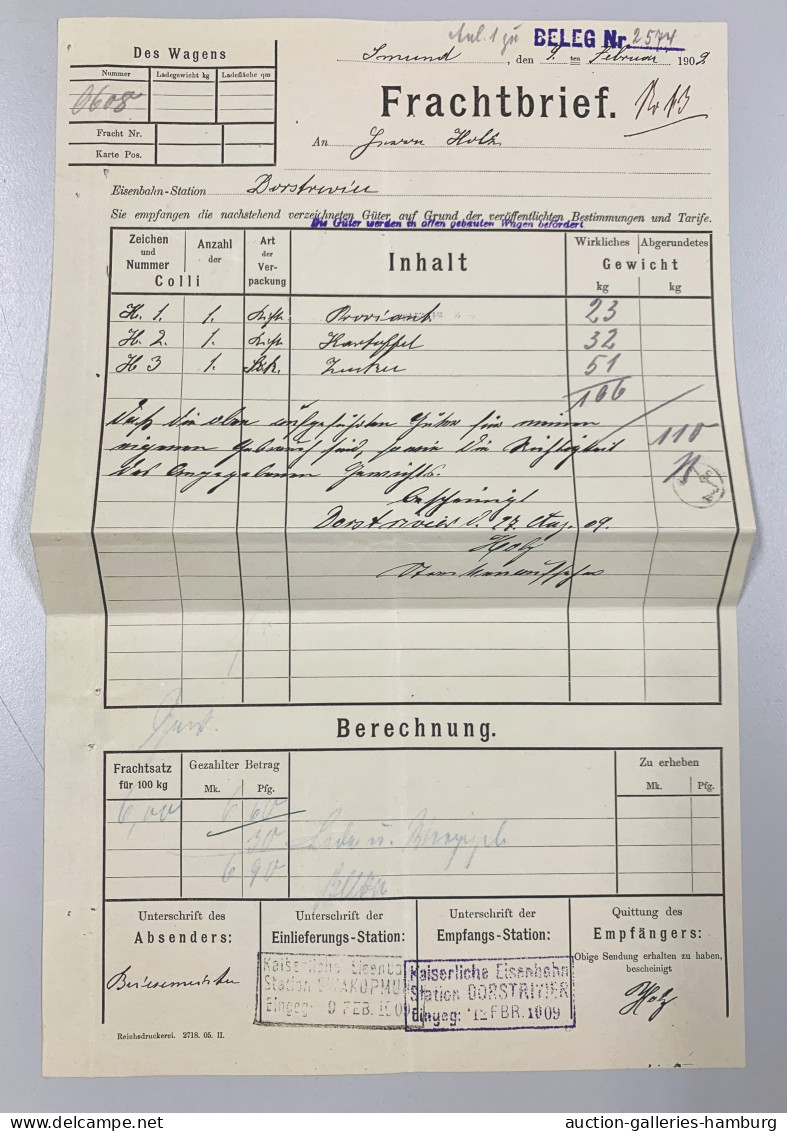 Anl. 1 zu BELEG Nr. 2574
Des Wagens
Smund, den 9. ten Februar 1909
Nummer Ladegewicht kg Ladefläche qm
0608
Frachtbrief. No 13
Fracht Nr.
Karte Pos.
An Herrn Holz
Eisenbahn-Station Dorstrivier
Sie empfangen die nachstehend verzeichneten Güter auf Grund der veröffentlichten Bestimmungen und Tarife.
Die Güter werden in offen gebauten Wagen befördert
Zeichen und Nummer Anzahl der Art der Ver-packung Inhalt Wirkliches Abgerundetes
Colli Gewicht
kg kg
H. 1. 1. Kiste Proviant 23
H. 2 1. Kiste Kartoffel 32
H 3 1. Sck. Zucker 51
106
Daß die oben aufgeführten Güter für meinen 110
eigenen Gebrauch sind, sowie die Richtigkeit
des angegebenen Gewichts.
bescheinigt
Dorstrivier d. 27. Aug. 09.
Holz
Berechnung.
Frachtsatz für 100 kg Gezahlter Betrag Zu erheben
Mk. Pfg. Mk. Pfg.
6,00 6 60
30
6 90
Unterschrift des Absenders: Unterschrift der Einlieferungs-Station: Unterschrift der Empfangs-Station: Quittung des Empfängers:
Obige Sendung erhalten zu haben, bescheinigt
Kaiserliche Eisenba
Station SWAKOPMU
Eingeg: 9 FEB. 1909
Kaiserliche Eisenbahn
Station DORSTRIVIER
Eingeg: 12 FBR. 1909
Holz
Reichsdruckerei. 2718. 05. II.
auction-galleries-hamburg